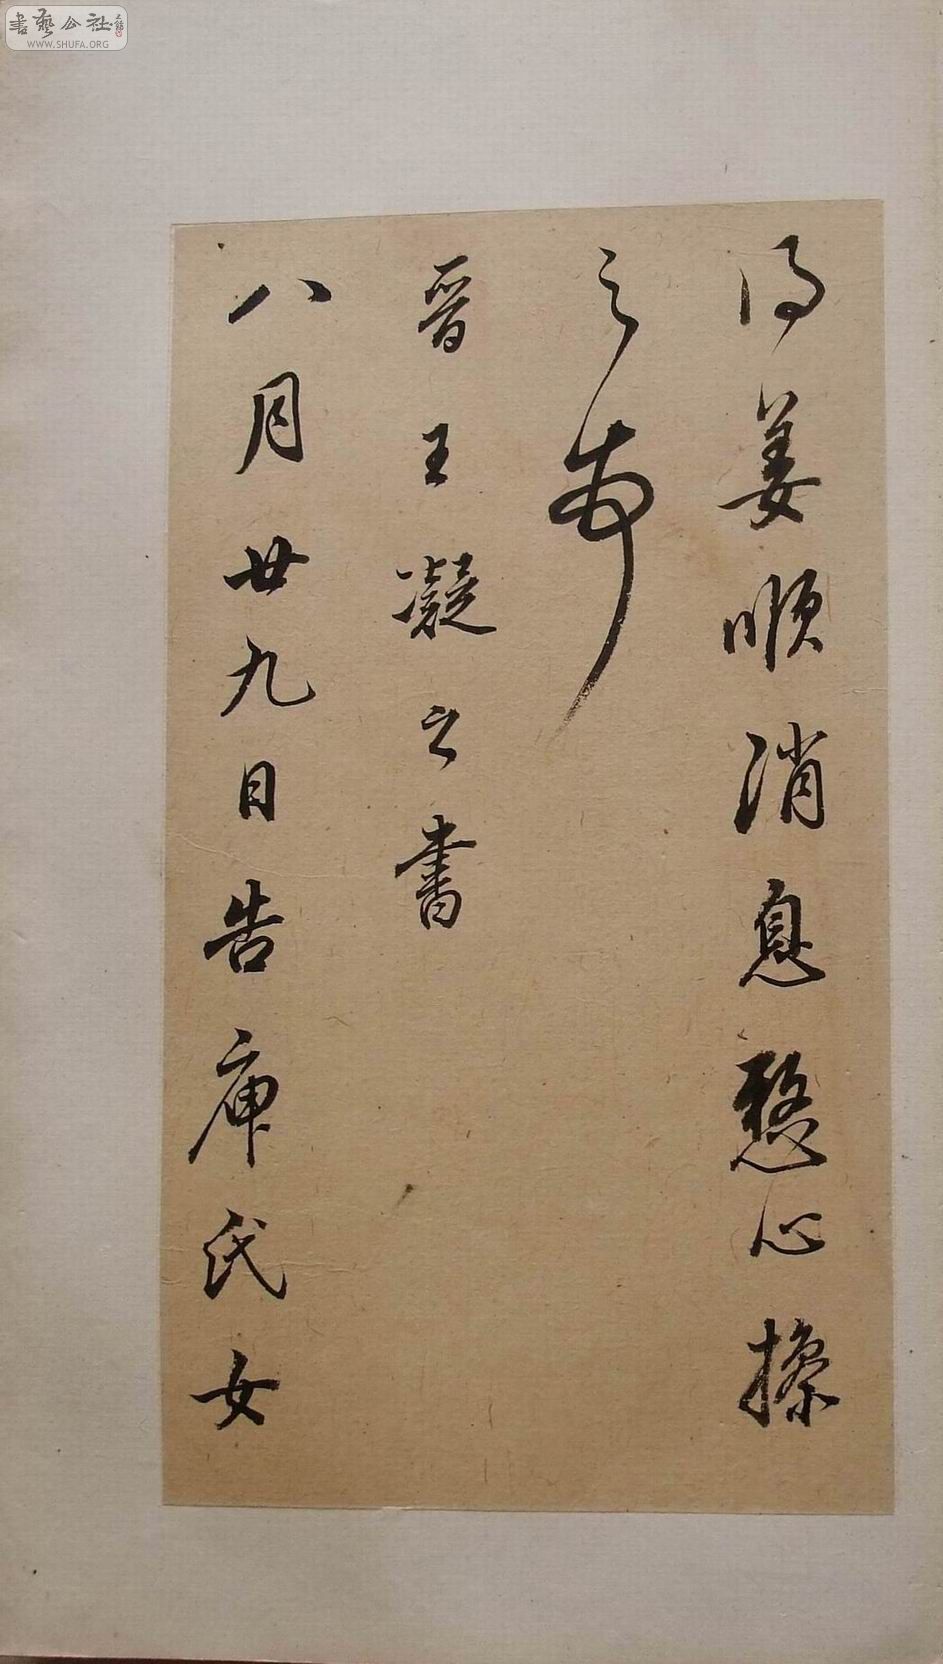 書藝公社
WWW.SHUFA.ORG
得姜順消息心操
之
晉王凝之書
八月廿九日告庾氏女